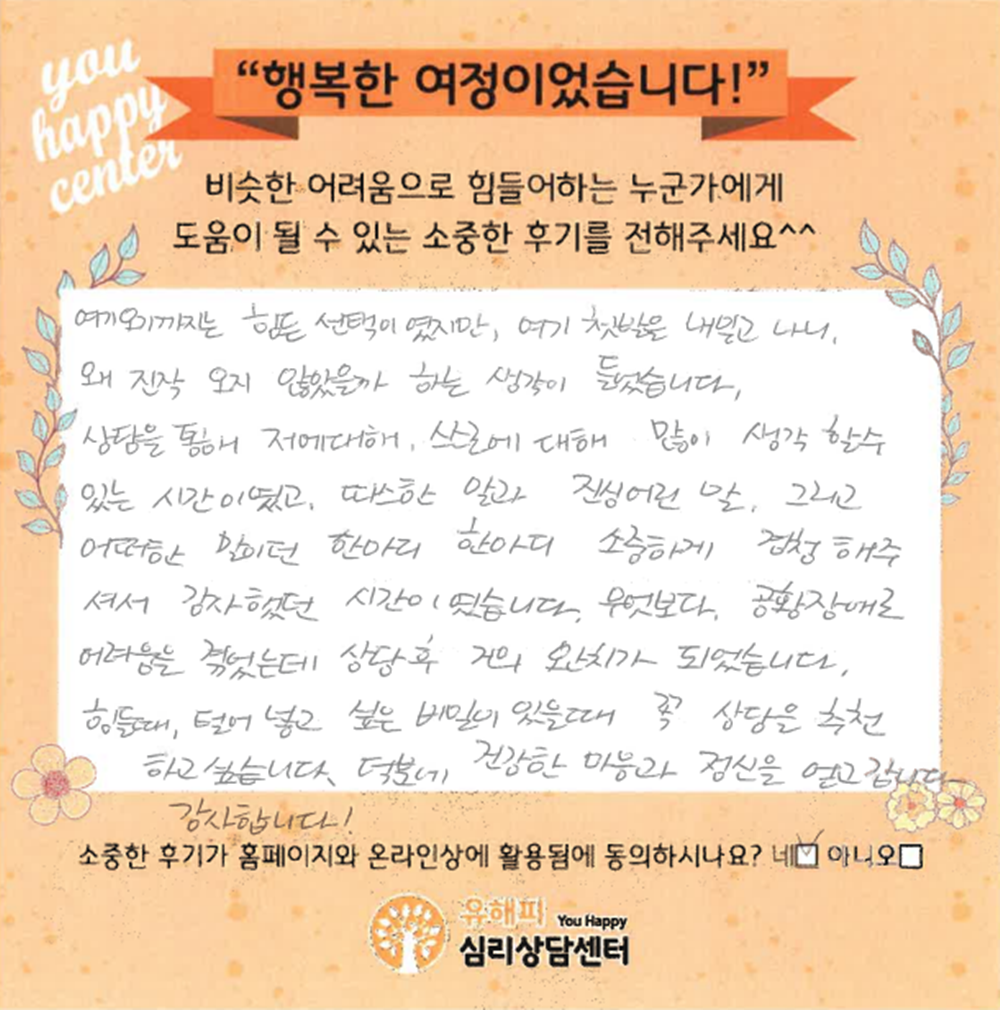 you
happy
center
“행복한 여정이었습니다!”
비슷한 어려움으로 힘들어하는 누군가에게
도움이 될 수 있는 소중한 후기를 전해주세요^^
여기오기까지는 힘든 선택이였지만, 여기 첫발을 내밀고 나니,
왜 진작 오지 않았을까 하는 생각이 들었습니다.
상담을 통해 저에대해, 스스로에 대해 많이 생각 할수
있는 시간이였고, 따스한 말과 진심어린 말, 그리고
어떠한 말이던 한마디 한마디 소중하게 경청 해주
셔서 감사했던 시간이였습니다. 무엇보다, 공황장애로
어려움을 겪었는데 상담후 거의 완치가 되었습니다.
힘들때, 털어 넣고 싶은 비밀이 있을때 꼭 상담을 추천
하고싶습니다. 덕분에 건강한 마음과 정신을 얻고갑니다
감사합니다!
소중한 후기가 홈페이지와 온라인상에 활용됨에 동의하시나요? 네☑ 아니오□
유해피 You Happy
심리상담센터